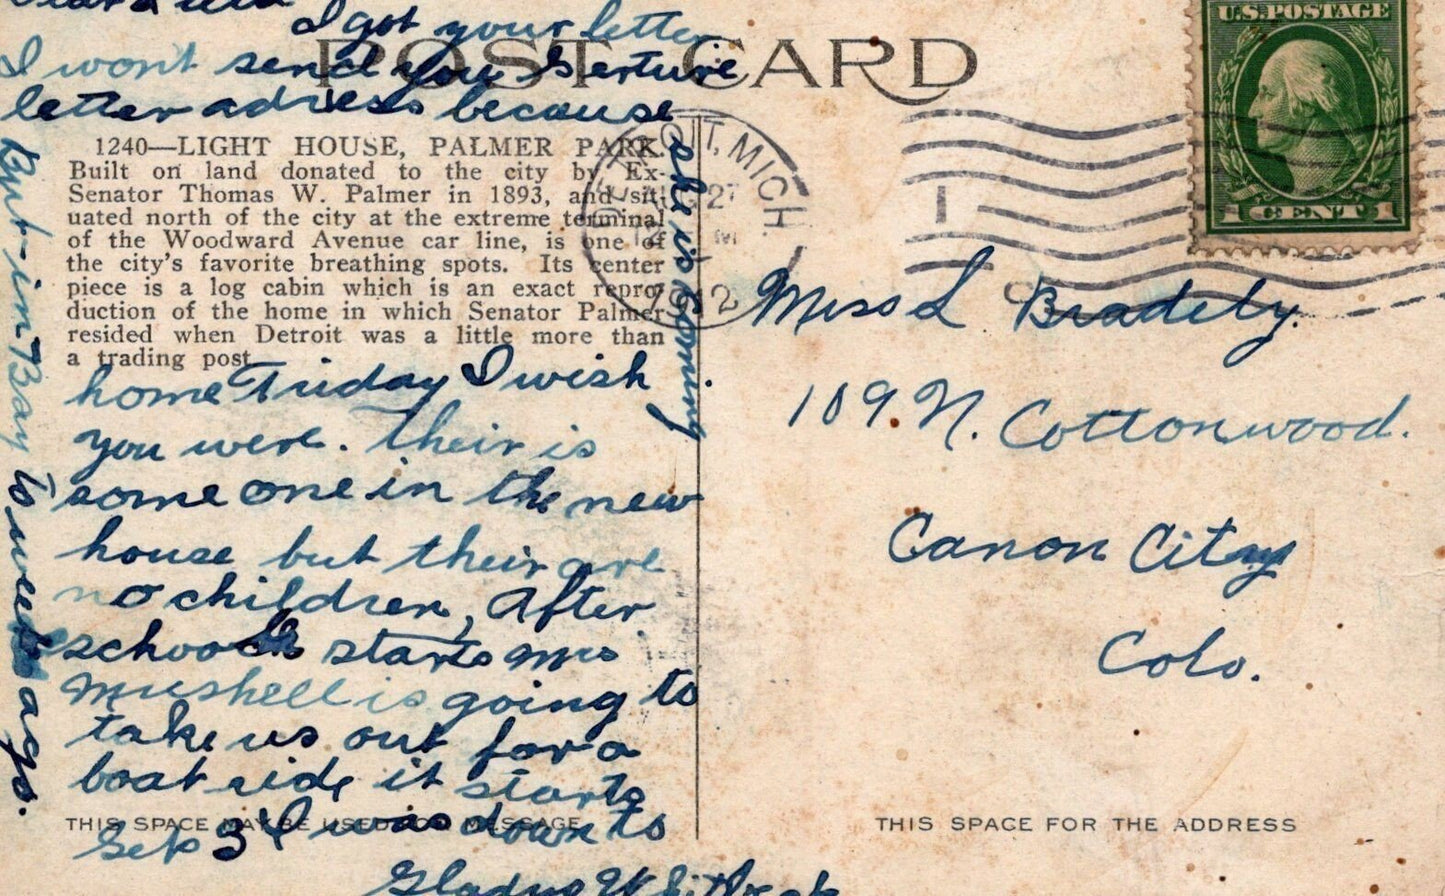 I got your letter
I wont send you Gerture
letter adress because
she is coming
home Friday I wish
you were. Their is
some one in the new
house but their are
no children, After
school starts Mrs
Mushell is going to
take us out for a
boat ride it starts
Sep 3 I was down to
But-in-Bay to weeks ago.
Gladys
POST CARD
1240—LIGHT HOUSE, PALMER PARK.
Built on land donated to the city by Ex-
Senator Thomas W. Palmer in 1893, and sit-
uated north of the city at the extreme terminal
of the Woodward Avenue car line, is one of
the city's favorite breathing spots. Its center
piece is a log cabin which is an exact repro-
duction of the home in which Senator Palmer
resided when Detroit was a little more than
a trading post
THIS SPACE MAY BE USED FOR MESSAGE
DETROIT, MICH
27
M
1912
1
U.S. POSTAGE
1 CENT 1
Miss L Bradely.
109 N. Cottonwood.
Canon City
Colo.
THIS SPACE FOR THE ADDRESS